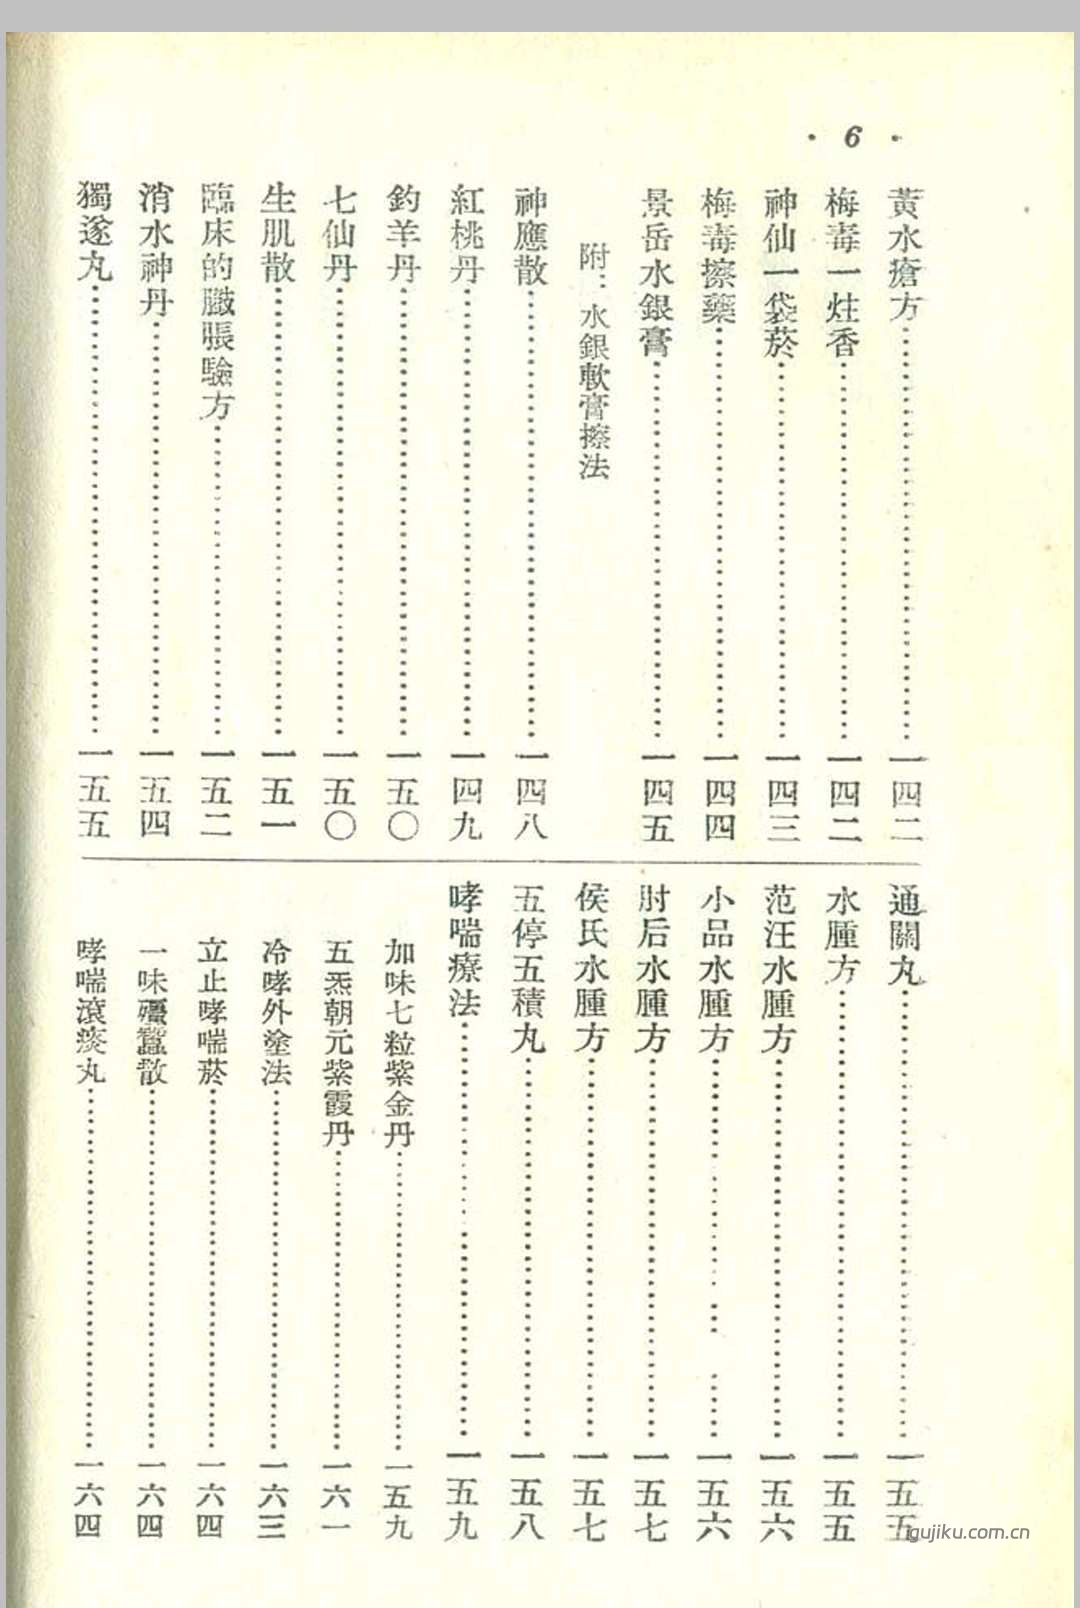 · 6 ·
黃水瘡方……一四二
梅毒一炷香……一四二
神仙一袋菸……一四三
梅毒擦藥……一四四
景岳水銀膏……一四五
附：水銀軟膏擦法
神應散……一四八
紅桃丹……一四九
釣羊丹……一五〇
七仙丹……一五〇
生肌散……一五一
臨床的臟脹驗方……一五二
消水神丹……一五四
獨遂丸……一五五
通關丸……一五五
水腫方……一五五
范汪水腫方……一五六
小品水腫方……一五六
肘后水腫方……一五七
侯氏水腫方……一五七
五停五積丸……一五八
哮喘療法……一五九
加味七粒紫金丹……一五九
五炁朝元紫霞丹……一六一
冷哮外塗法……一六三
立止哮喘菸……一六四
一味殭蠶散……一六四
哮喘滾痰丸……一六四
gujiku.com.cn